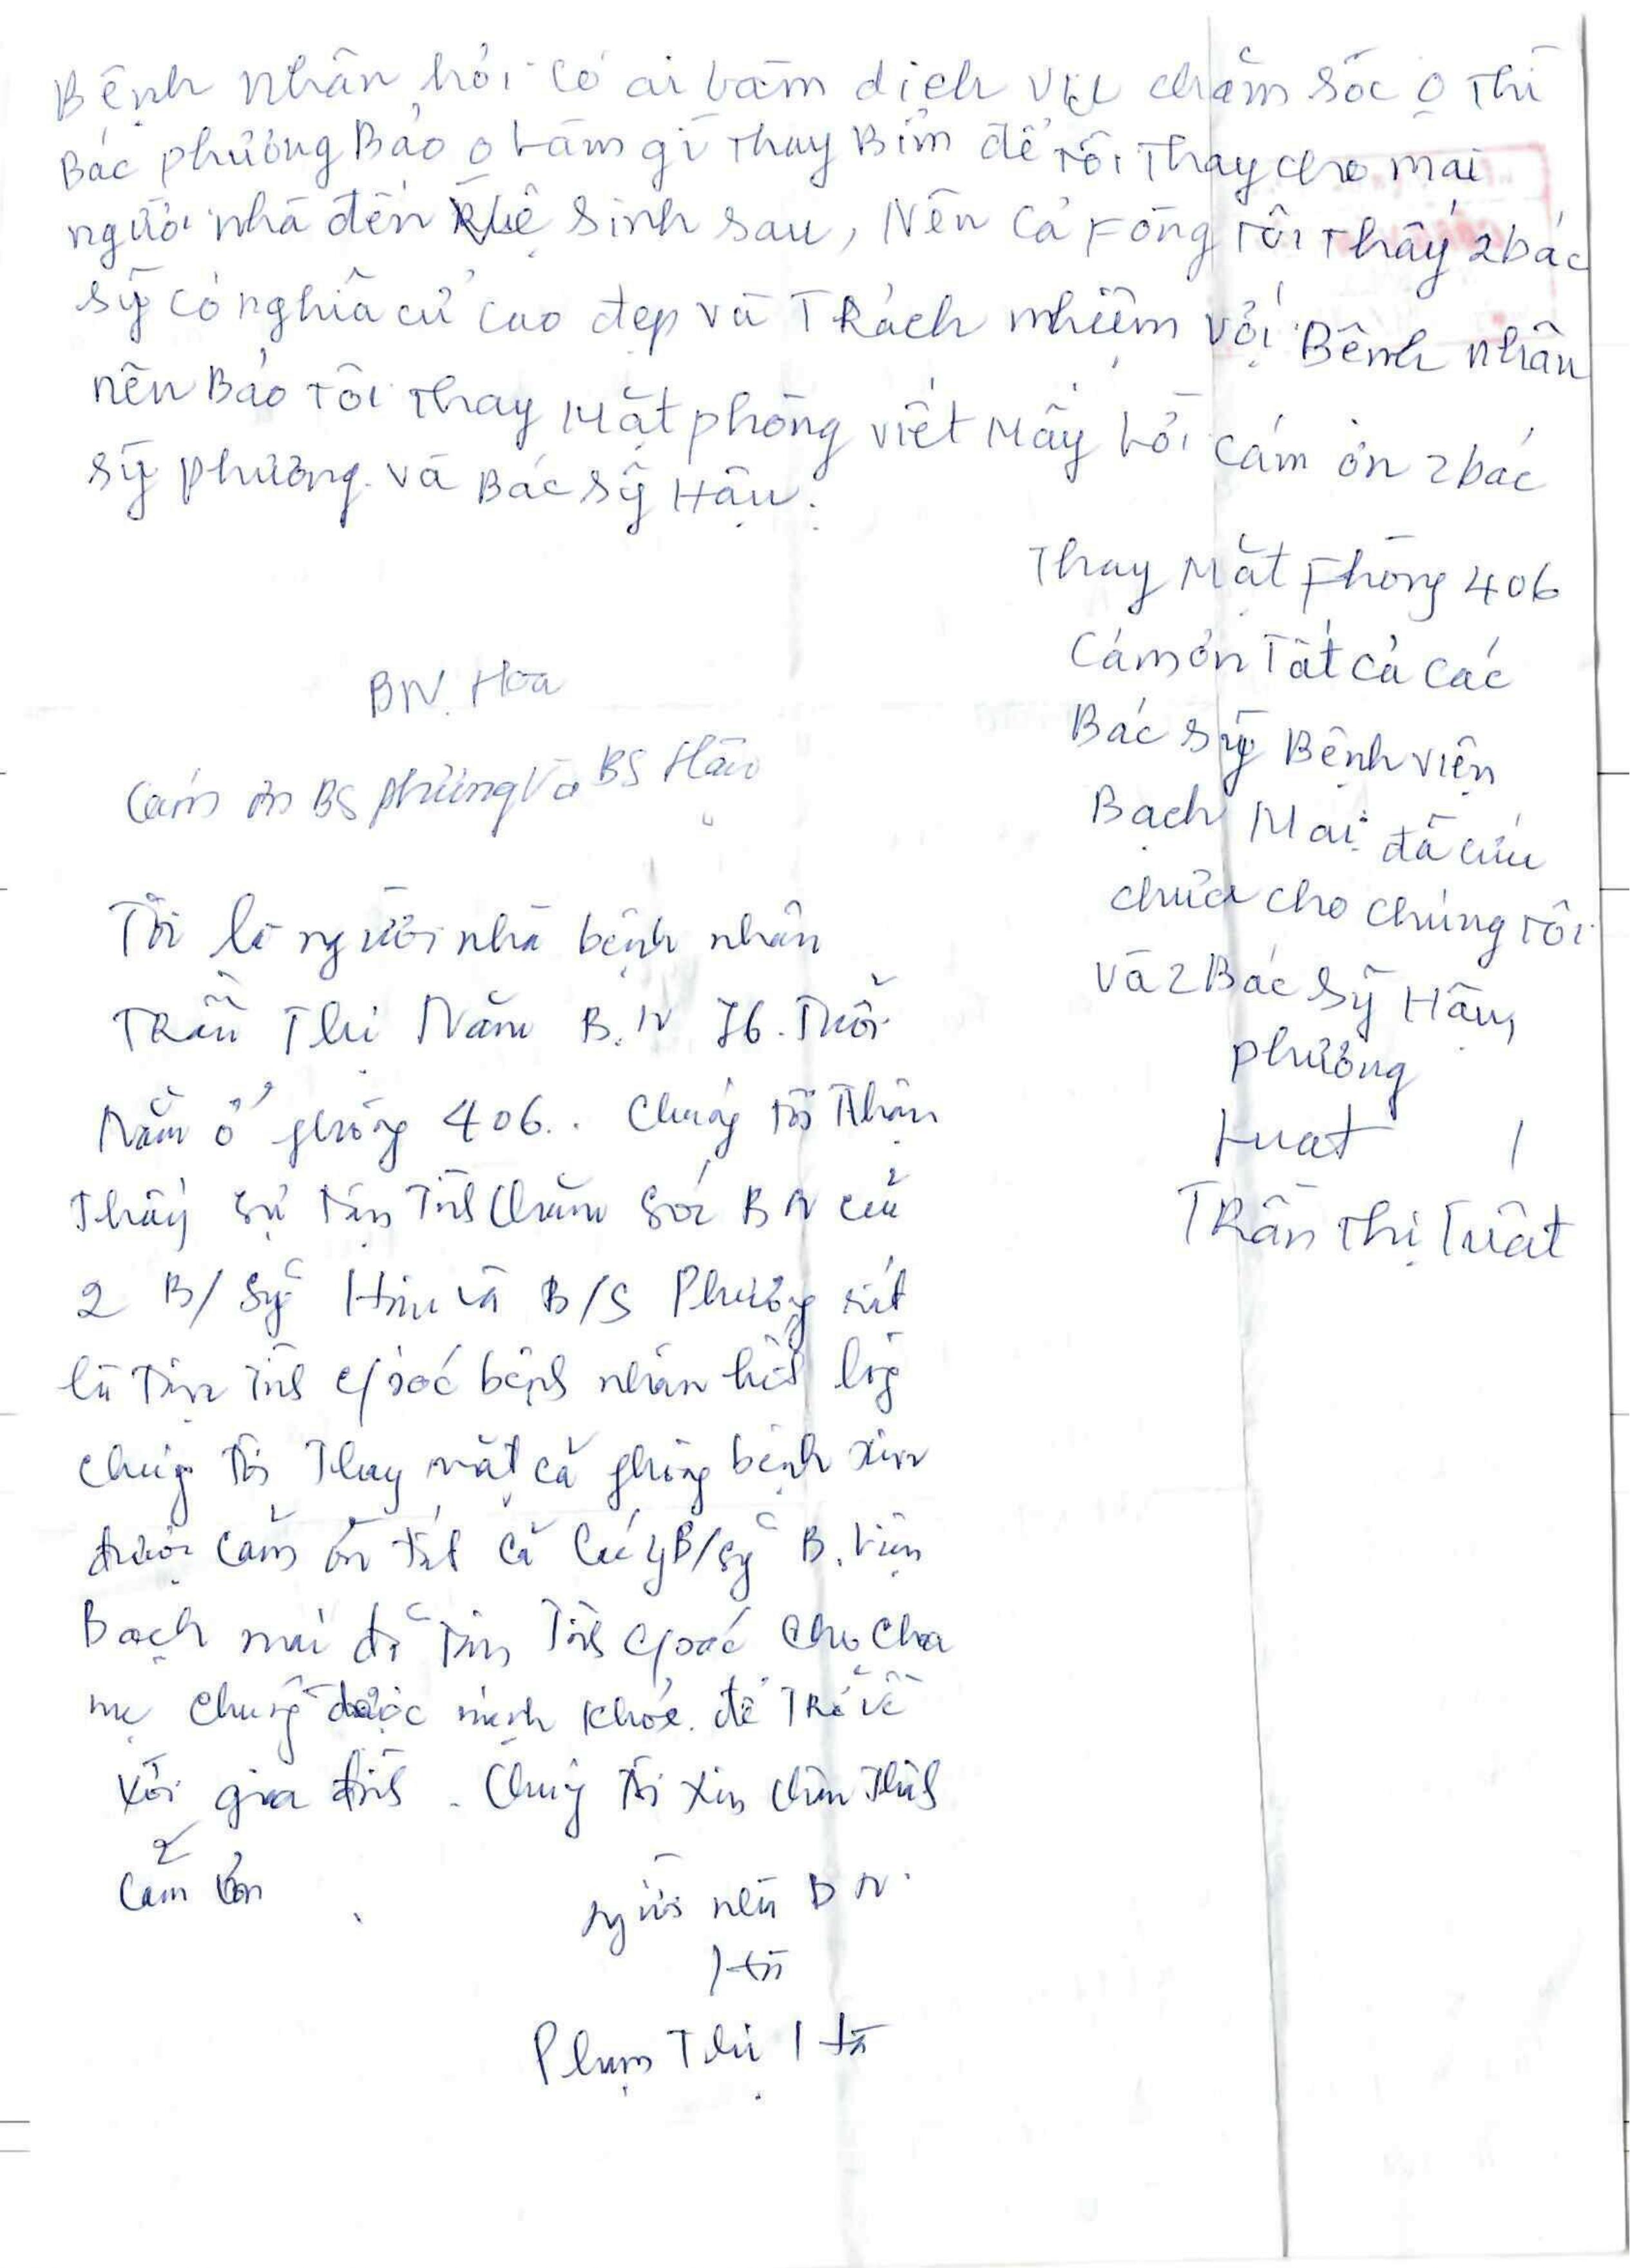 Bệnh nhân hỏi có ai làm dịch vụ chăm sóc o thì
Bác phương Bảo o làm gì thay Bỉm để tôi thay cho mai
người nhà đến vệ sinh sau, Nên cả Fòng tôi thấy 2 bác
sỹ có nghĩa cử cao đẹp và TRách nhiệm với Bệnh nhân
nên Bảo tôi thay Mặt phòng viết Mấy lời cám ơn 2 bác
sỹ phương. và Bác sỹ Hậu.
Thay Mặt Fhòng 406
Cám ơn Tất cả các
Bác sỹ Bệnh viện
Bạch Mai đã cứu
chữa cho chúng tôi
và 2 Bác sỹ Hậu,
phương
Luat
TRần Thị Luật
BN. Hoa
Cám ơn BS phương và BS Hậu
Tôi là người nhà bệnh nhân
TRần Thị Năm B.N 76. Tuổi
Nằm ở phòng 406.. Chúng tôi Nhận
Thấy sự tận Tình Chăm sóc BN của
2 B/sỹ Hậu và B/S Phương rất
là Tận tình c/sóc bệnh nhân hết lòng
chúng tôi Thay mặt cả phòng bệnh xin
được cảm ơn tất cả các y B/sỹ B. Viện
Bạch mai đã Tận Tình c/soác cho cha
mẹ chúng được mạnh khỏe. để TRở về
Với gia đình. Chúng tôi xin chân Thành
Cảm ơn
người nhà BN.
Hà
Phạm Thị Hà